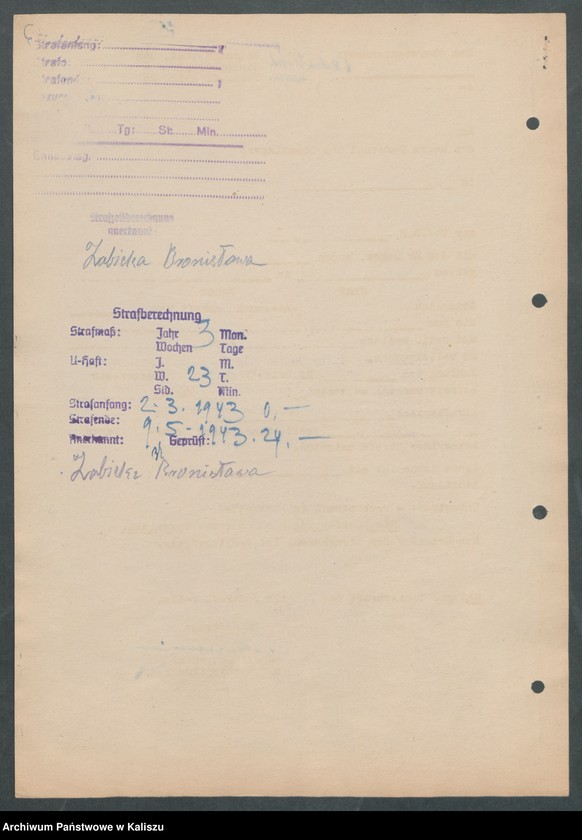 Strafanfang:
Strafe:
Strafende:
Tg: St. Min.
Strafzeitberechnung
anerkannt:
Zabicka Bronisława
Strafberechnung
Strafmaß: Jahr 3 Mon.
Wochen Tage
U-Haft: J. M.
W. 23 T.
Std. Min.
Strafanfang: 2. 3. 1943 0,—
Strafende: 9. 5. 1943. 24,—
Anerkannt: Geprüft:
Zabicka Bronisława
Archiwum Państwowe w Kaliszu